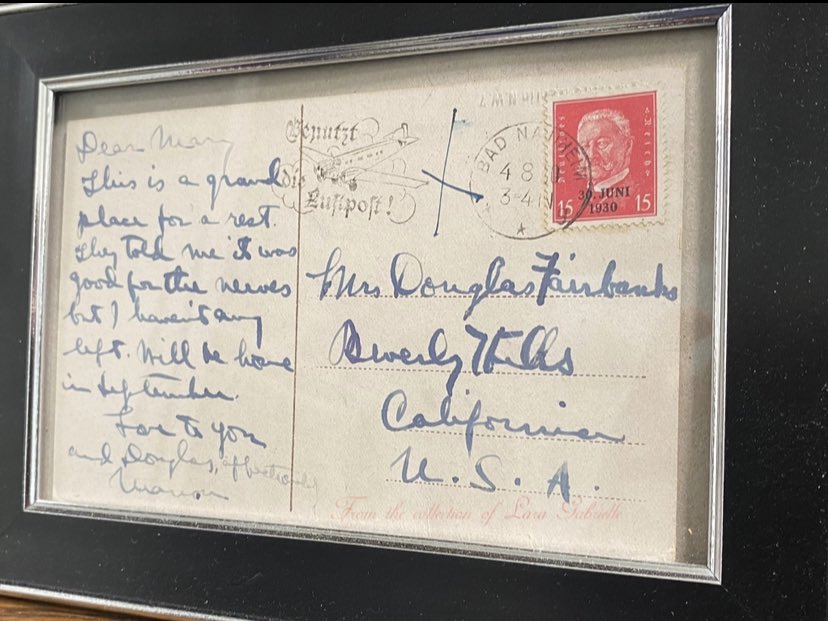 Dear Mary
This is a grand
place for a rest.
They told me it was
good for the nerves
but I haven't any
left. Will be home
in September.
Love to you
and Douglas, affectionately
Marion
Benutzt
die
Luftpost!
BAD NAUHEIM
4 8
3-4 N
Deutsches Reich
30. JUNI
1930
15 15
Mrs Douglas Fairbanks
Beverly Hills
California
U.S.A.
From the collection of Lara Gabrielle